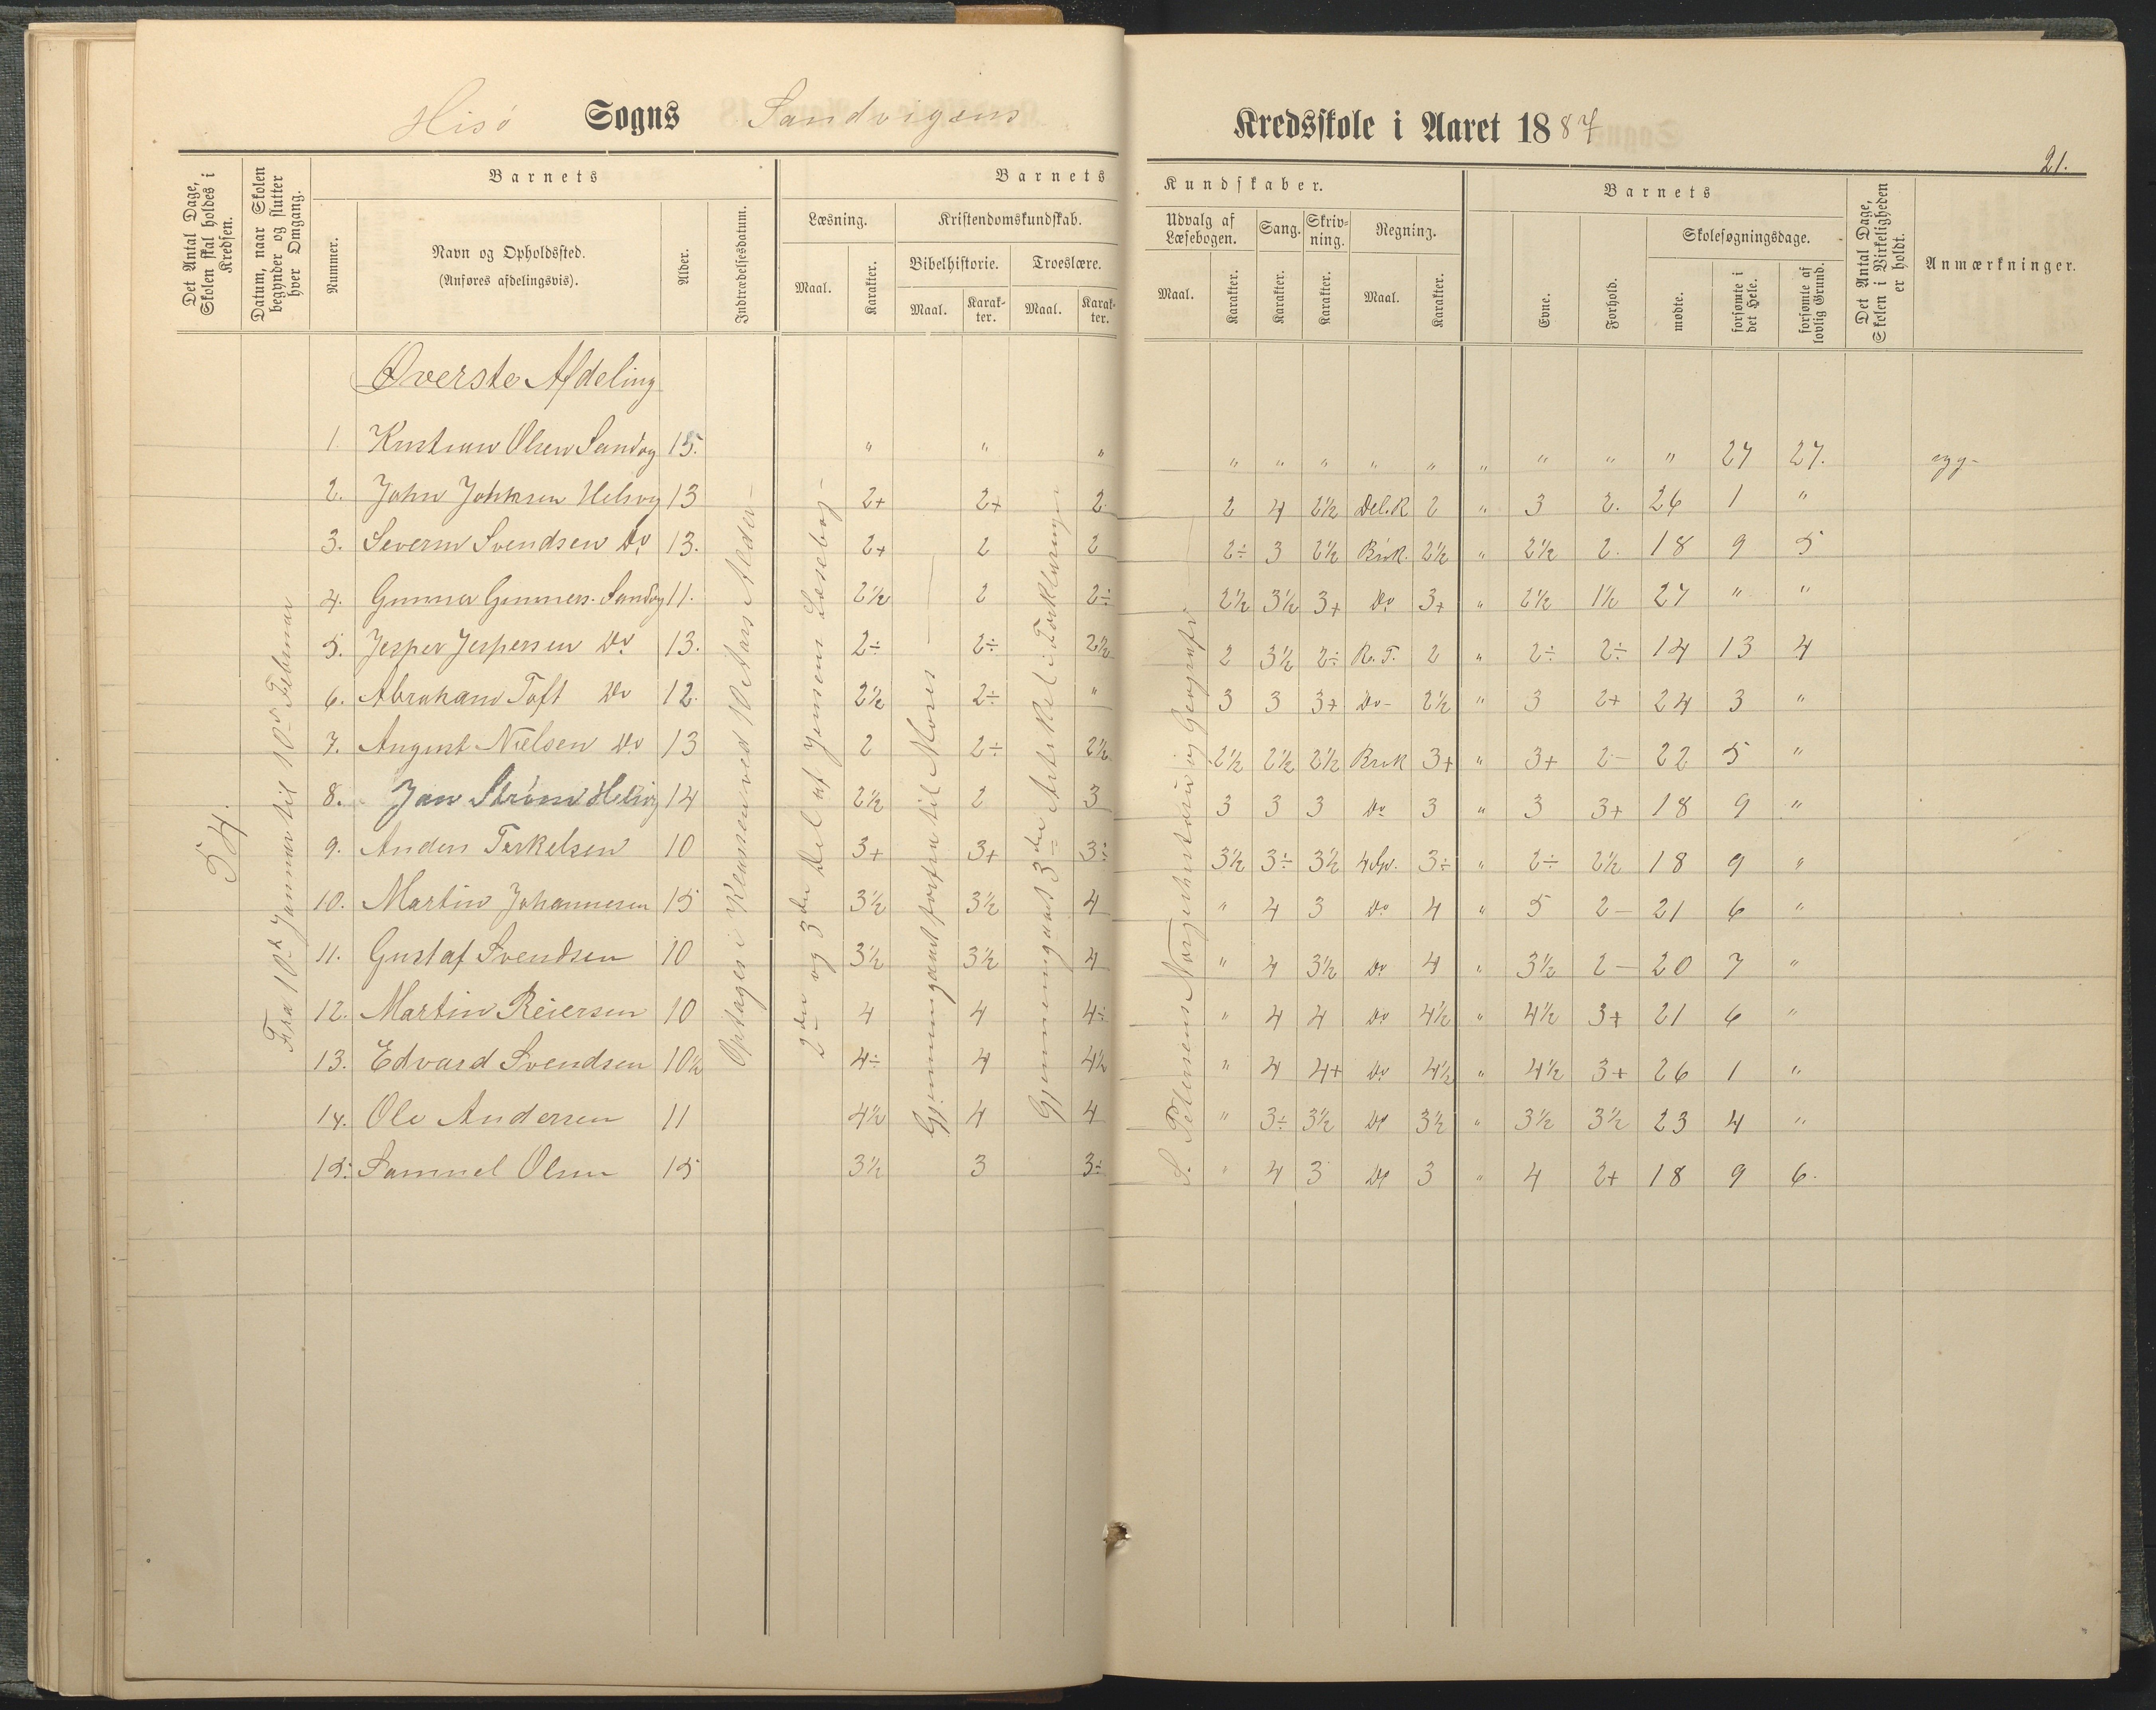 Hisø Sogns Sandvigens Kredsskole i Aaret 1887
21.
Det Antal Dage, Skolen skal holdes i Kredsen.
Datum, naar Skolen begynder og slutter hver Omgang.
Barnets
Nummer.
Navn og Opholdssted.
(Anføres afdelingsvis).
Alder.
Indtrædelsesdatum.
Barnets Kundskaber.
Læsning.
Maal.
Karakter.
Kristendomskundskab.
Bibelhistorie.
Maal.
Karakter.
Troeslære.
Maal.
Karakter.
Udvalg af Læsebogen.
Maal.
Karakter.
Sang.
Karakter.
Skrivning.
Karakter.
Regning.
Maal.
Karakter.
Barnets
Evne.
Forhold.
Skolesøgningsdage.
mødte.
forsømte i det Hele.
forsømte af lovlig Grund.
Det Antal Dage, Skolen i Virkeligheden er holdt.
Anmærkninger.
54.
Fra 10de Januar til 10de Februar
Optages i Klassen ved 10 Aars Alder-
2den og 3die Del af Jensens Læsebog-
Gjennemgaaet forfra til Moses
Gjennemgaaet 3die Artikel i Forklaringen
S. Petersens Norgeshistorie og Geografi.
Øverste Afdeling
1. Kristian Olsen Sandvg 15. " " " " " " " " " " " " 27 27. syg-
2. John Johnsen Helsvg 13 2+ 2+ 2 2 4 2½ Del.R 2 " 3 2. 26 1 "
3. Severin Svendsen Do 13. 2+ 2 2 2÷ 3 2½ Brøk. 2½ " 2½ 2. 18 9 5
4. Gunner Gunners. Sandvg 11. 2½ 2 2÷ 2½ 3½ 3+ Do 3+ " 2½ 1½ 27 " "
5. Jesper Jespersen Do 13. 2÷ 2÷ 2½ 2 3½ 2÷ R.T. 2 " 2÷ 2÷ 14 13 4
6. Abraham Toft Do 12. 2½ 2÷ " 3 3 3+ Do- 2½ " 3 2+ 24 3 "
7. August Nielsen Do 13 2 2÷ 2½ 2½ 2½ 2½ Brøk 3+ " 3+ 2- 22 5 "
8. Jan Strøm Helsvg 14 2½ 2 3 3 3 3 Do 3 " 3 3+ 18 9 "
9. Anders Terkelsen 10 3+ 3+ 3÷ 3½ 3÷ 3½ 4 Sp. 3÷ " 2÷ 2½ 18 9 "
10. Martin Johannesen 15 3½ 3½ 4 " 4 3 Do 4 " 5 2- 21 6 "
11. Gustaf Svendsen 10 3½ 3½ 4 " 4 3½ Do 4 " 3½ 2- 20 7 "
12. Martin Reiersen 10 4 4 4÷ " 4 4 Do 4½ " 4½ 3+ 21 6 "
13. Edvard Svendsen 10½ 4÷ 4 4½ " 4 4+ Do 4½ " 4½ 3+ 26 1 "
14. Ole Andersen 11 4½ 4 4 " 3÷ 3½ Do 3½ " 3½ 3½ 23 4 "
15. Samuel Olsen 15 3½ 3 3÷ " 4 3 Do 3 " 4 2+ 18 9 6.